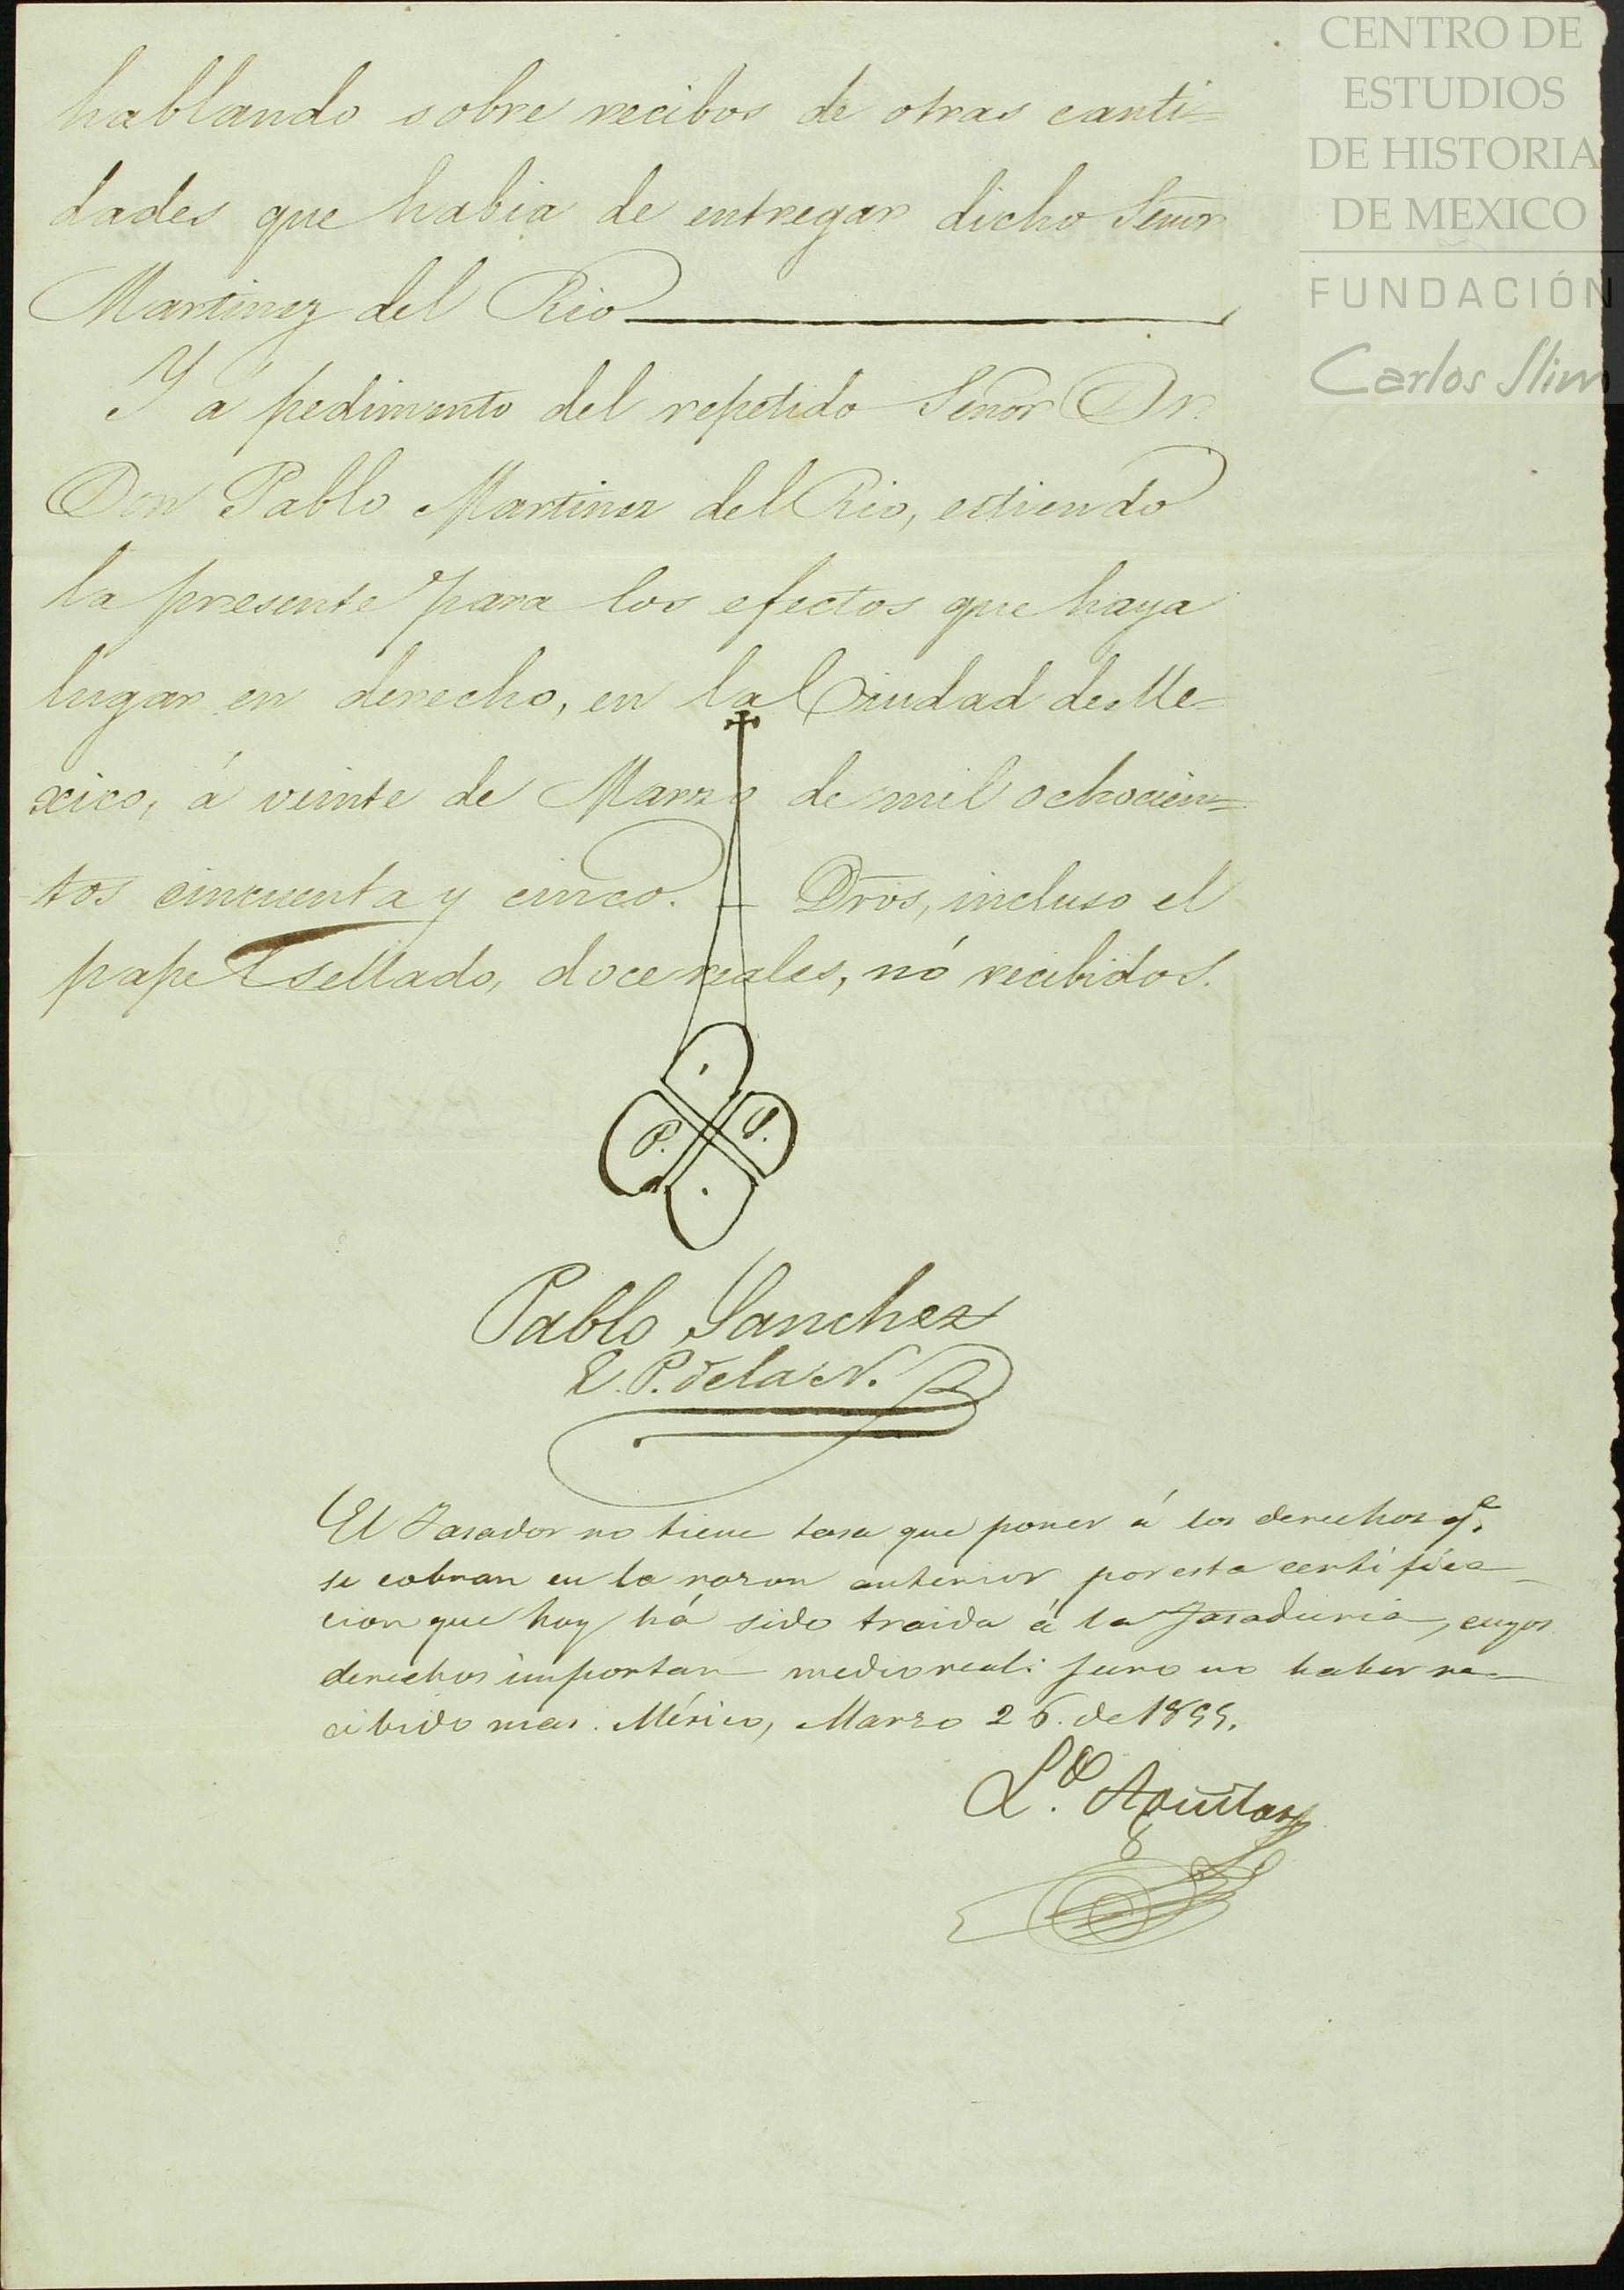 hablando sobre recibos de otras canti=
dades que habia de entregar dicho Señor
Martinez del Rio
Y a pedimento del repetido Señor Dr.
Don Pablo Martinez del Rio, estiendo
la presente para los efectos que haya
lugar en derecho, en la Ciudad de Me=
xico, á veinte de Marzo de mil ochocien=
tos cincuenta y cinco. — Dros, incluso el
papel sellado, doce reales, nó recibidos.
P. S.
Pablo Sanchez
E. P. de la N.
El Tasador no tiene tasa que poner á los derechos q.e
se cobran en la razon anterior por esta certifica-
cion que hoy há sido traida á la Tasaduria, cuyos
derechos importan medio real: juro no haber re-
cibido mas. México, Marzo 26. de 1855.
L.do Aguilar
CENTRO DE
ESTUDIOS
DE HISTORIA
DE MEXICO
FUNDACIÓN
Carlos Slim